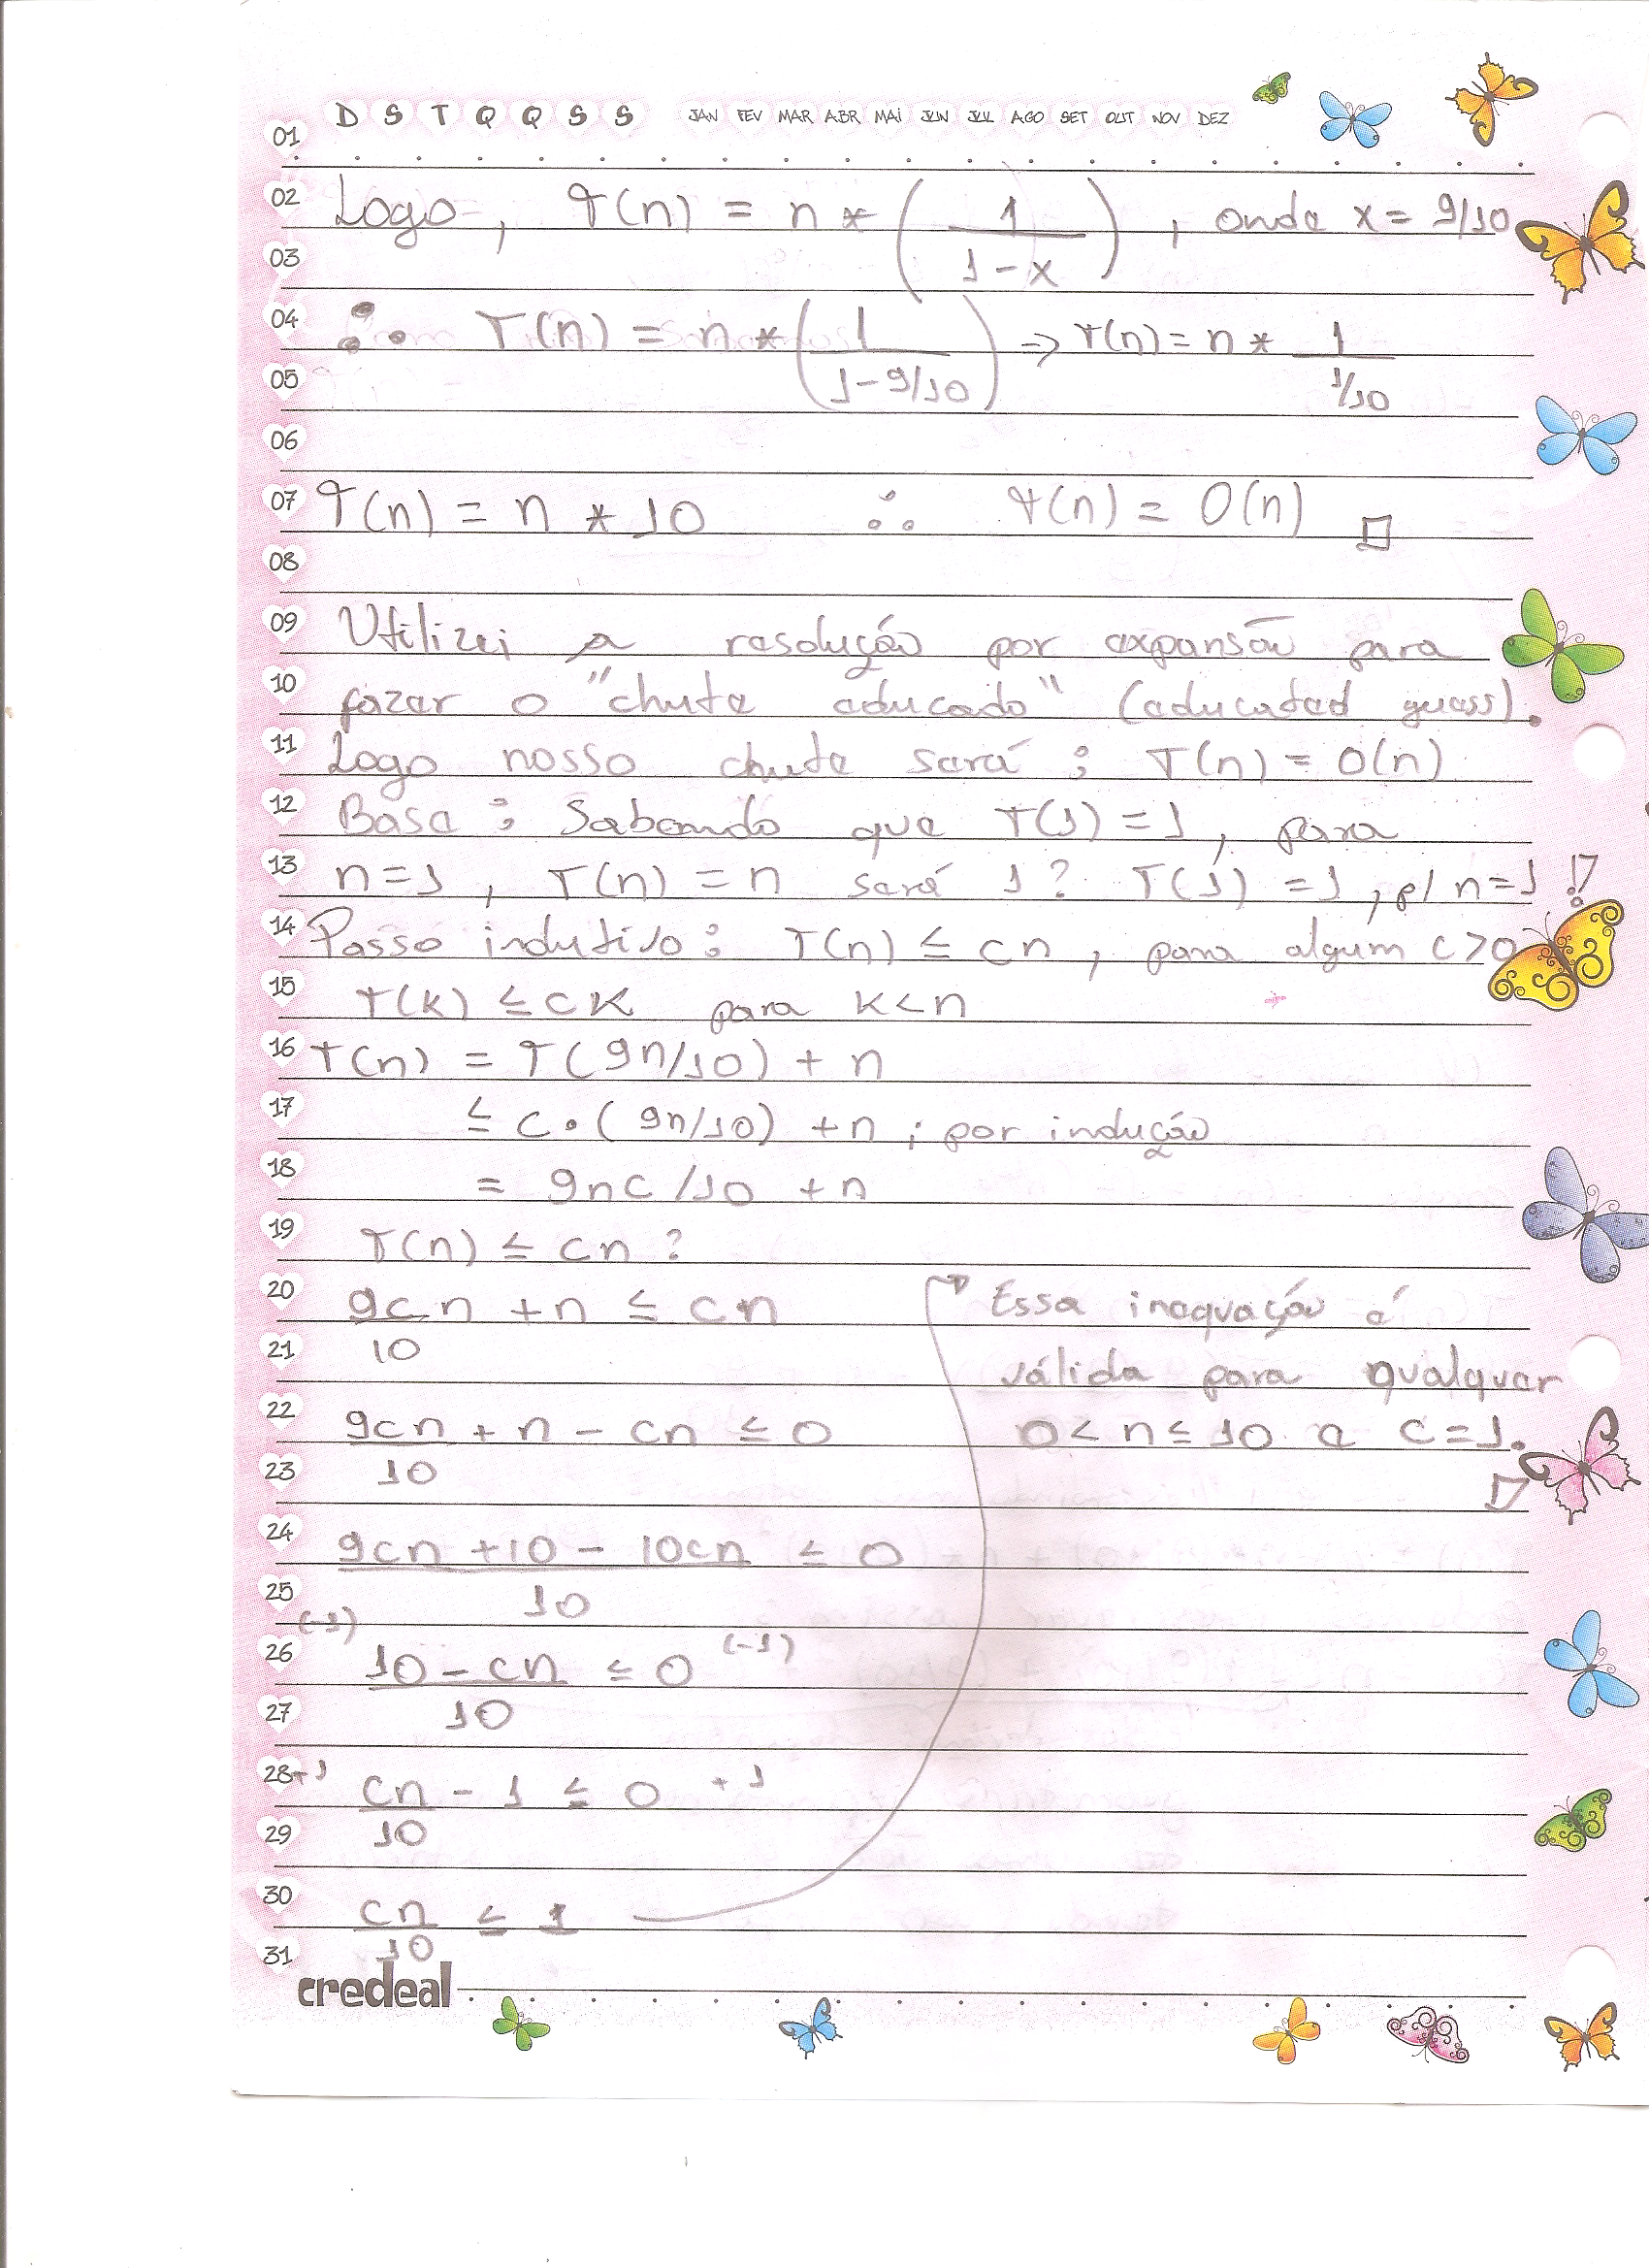 D S T Q Q S S JAN FEV MAR ABR MAI JUN JUL AGO SET OUT NOV DEZ
01
02 Logo, T(n) = n * ( 1 / 1-x ) , onde x = 9/10
03
04 ∴ T(n) = n * ( 1 / 1-9/10 ) => T(n) = n * 1 / 1/10
05
06
07 T(n) = n * 10 ∴ T(n) = O(n) □
08
09 Utilizei a resolução por expansão para
10 fazer o "chute educado" (educated guess).
11 Logo nosso chute será : T(n) = O(n)
12 Base : Sabendo que T(1) = 1 , para
13 n=1 , T(n) = n será 1 ? T(1) = 1 , p/ n=1 !?
14 Passo indutivo : T(n) ≤ cn , para algum c>0
15 T(k) ≤ ck para k<n
16 T(n) = T(9n/10) + n
17 ≤ c.(9n/10) + n ; por indução
18 = 9nc/10 + n
19 T(n) ≤ cn ?
20 9cn + n ≤ cn
21 10
Essa inequação é
válida para qualquer
0 < n ≤ 10 e c = 1.
22 9cn + n - cn ≤ 0
23 10
24 9cn + 10 - 10cn ≤ 0
25 10
(-1)
26 10 - cn ≤ 0 (-1)
27 10
28 +1 cn - 1 ≤ 0 +1
29 10
30 cn ≤ 1
31 10
credeal